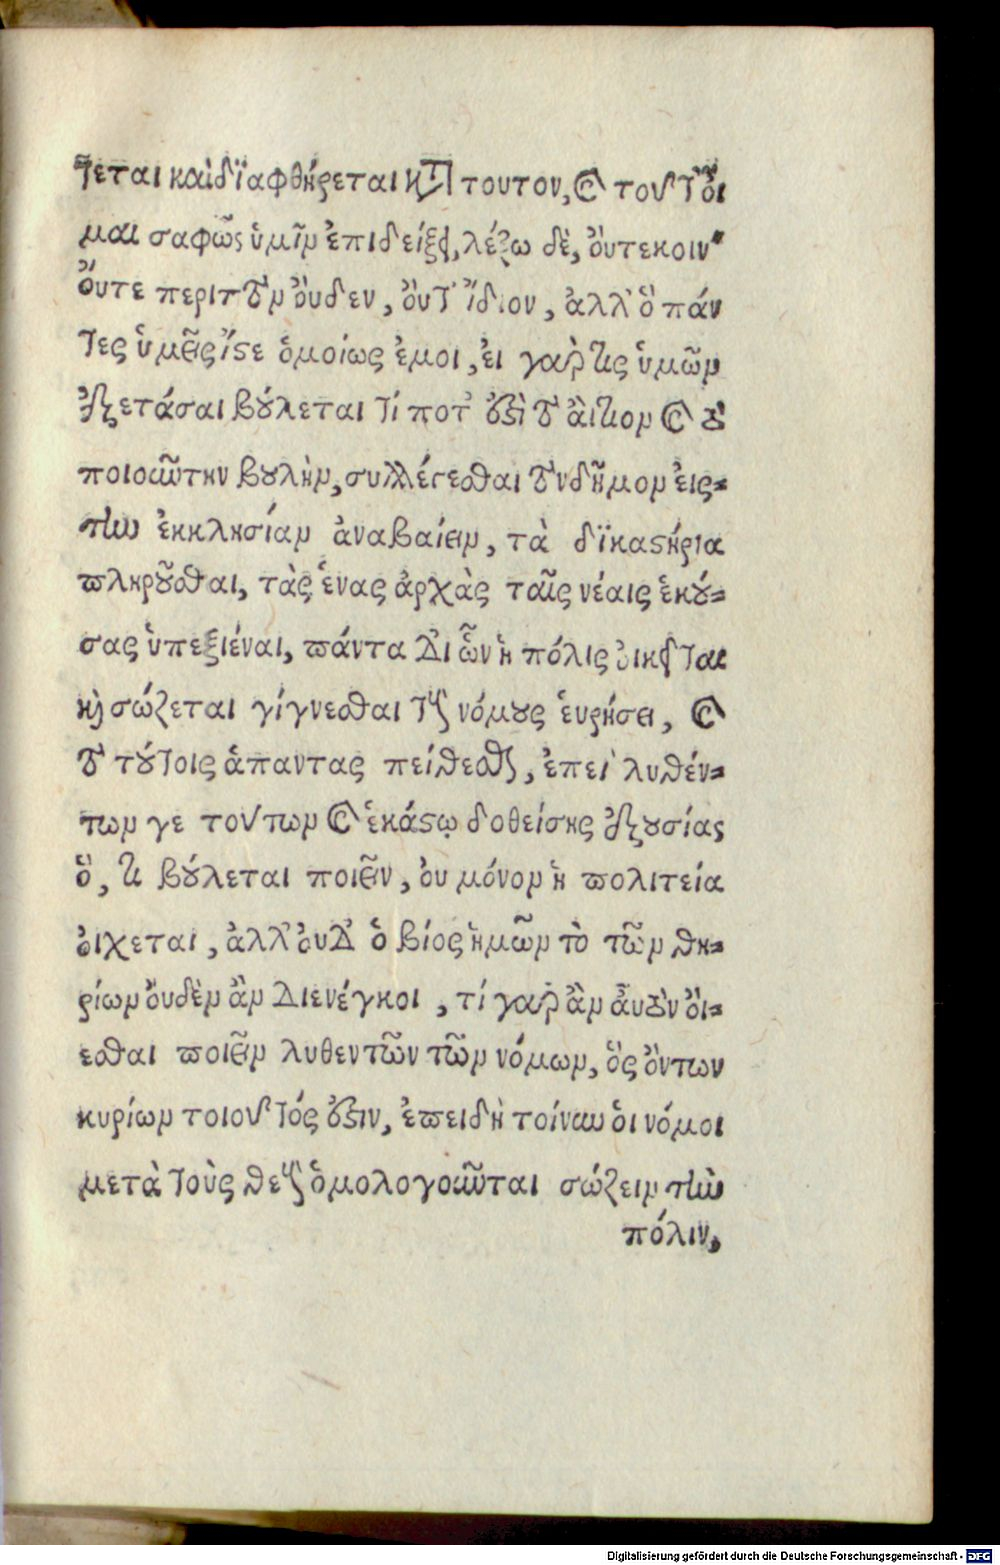 τεται καὶ δϊαφθήρεται κατὰ τουτον, καὶ τοῦτ' οἶ
μαι σαφῶς ὑμῖν ἐπιδείξειν, λέξω δὲ, ὄυτε κοιν
ὄυτε περιττὸν ὀυδεν, ὄυτ' ἴδιον, ἀλλ' ὃ πάν
τες ὑμεῖς ἴστε ὁμοίως ἐμοι, ἐι γαρ τις ὑμῶν
ἐξετάσαι βούλεται τί ποτ' ἐστὶ τὸ ἄιτιον καὶ τὸ
ποιοῦν τὴν βουλὴν, συλλέγεσθαι τὸν δῆμον ἐις-
τὴν ἐκκλησίαν ἀναβαίειν, τὰ δϊκαστήρια
πληροῦσθαι, τὰς ἕνας ἀρχὰς ταῖς νέαις ἑκού-
σας ὑπεξιέναι, πάντα δι ὧν ἡ πόλις ὀικεῖται
καὶ σώζεται γίγνεσθαι τοὺς νόμους ἑυρήσει, καὶ
τὸ τούτοις ἁπαντας πείθεσθαι, ἐπεὶ λυθέν-
των γε τούτων καὶ ἑκάστῳ δοθείσης ἐξουσίας
ὃ, τι βούλεται ποιεῖν, ὀυ μόνον ἡ πολιτεία
ὀιχεται, ἀλλ' ὀυδ' ὁ βίος ἡμῶν τὸ τῶν θη-
ρίων ὀυδὲν ἂν διενέγκοι, τί γαρ ἂν ἀυτὸν ὄι-
εσθαι ποιεῖν λυθεντῶν τῶν νόμων, ὃς ὄντων
κυρίων τοιοῦτός ἐστιν, ἐπειδὴ τοίνυν ὁι νόμοι
μετὰ τοὺς θεοὺς ὁμολογοῦνται σώζειν τὴν
πόλιν,
Digitalisierung gefördert durch die Deutsche Forschungsgemeinschaft - DFG